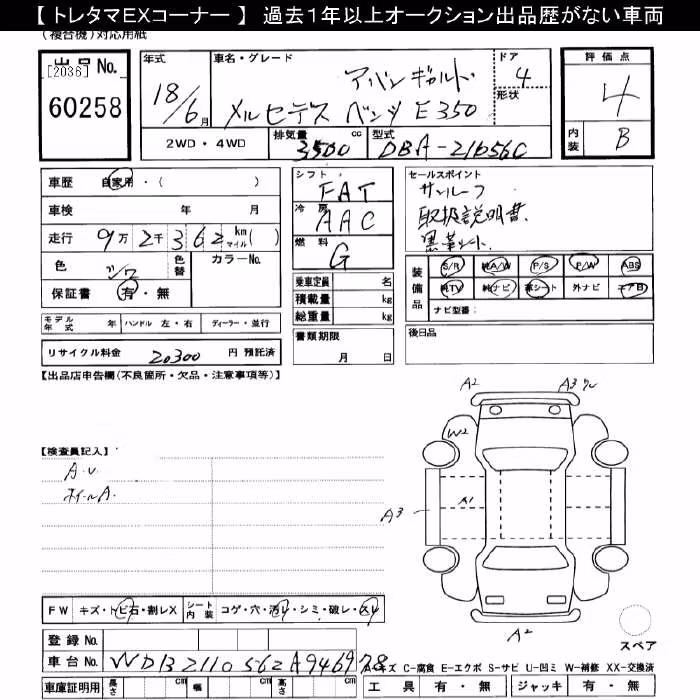 【トレタマEXコーナー】 過去1年以上オークション出品歴がない車両
(複合機)対応用紙
出品No.
[2036]
60258
年式
18/6月
車名・グレード
アバンギャルド
メルセデス ベンツ E350
ドア
4
形状
評価点
4
内装 B
2WD・4WD
排気量 3500 cc
型式 DBA-211056C
車歴 自家用・( )
車検 年 月
走行 9万2千362 km マイル( )
色 シロ 色替 カラーNo.
保証書 有・無
シフト FAT
冷房 AAC
燃料 G
乗車定員 名
積載量 kg
総重量 kg
セールスポイント
サンルーフ
取扱説明書
黒革シート
装備品 S/R 純A/W P/S P/W ABS
純TV 純ナビ 革シート 外ナビ エアB
ナビ型番:
モデル年式 年 ハンドル 左・右 ディーラー・並行
書類期限
月 日
後日品
リサイクル料金 20300 円 預託済
【出品店申告欄(不良箇所・欠品・注意事項等)】
A2
A3
W2
A1
A3
A2
【検査員記入】
A・U
ホイールA.
FW キズ・トビ石・割レX シート内装 コゲ・穴・汚レ・シミ・破レ・スレ
スペア
登録No.
車台No. WDB2110562A946978
A-キズ C-腐食 E-エクボ S-サビ U-凹ミ W-補修 XX-交換済
車庫証明用 長さ cm 幅 cm 高さ cm
工具 有・無 ジャッキ 有・無